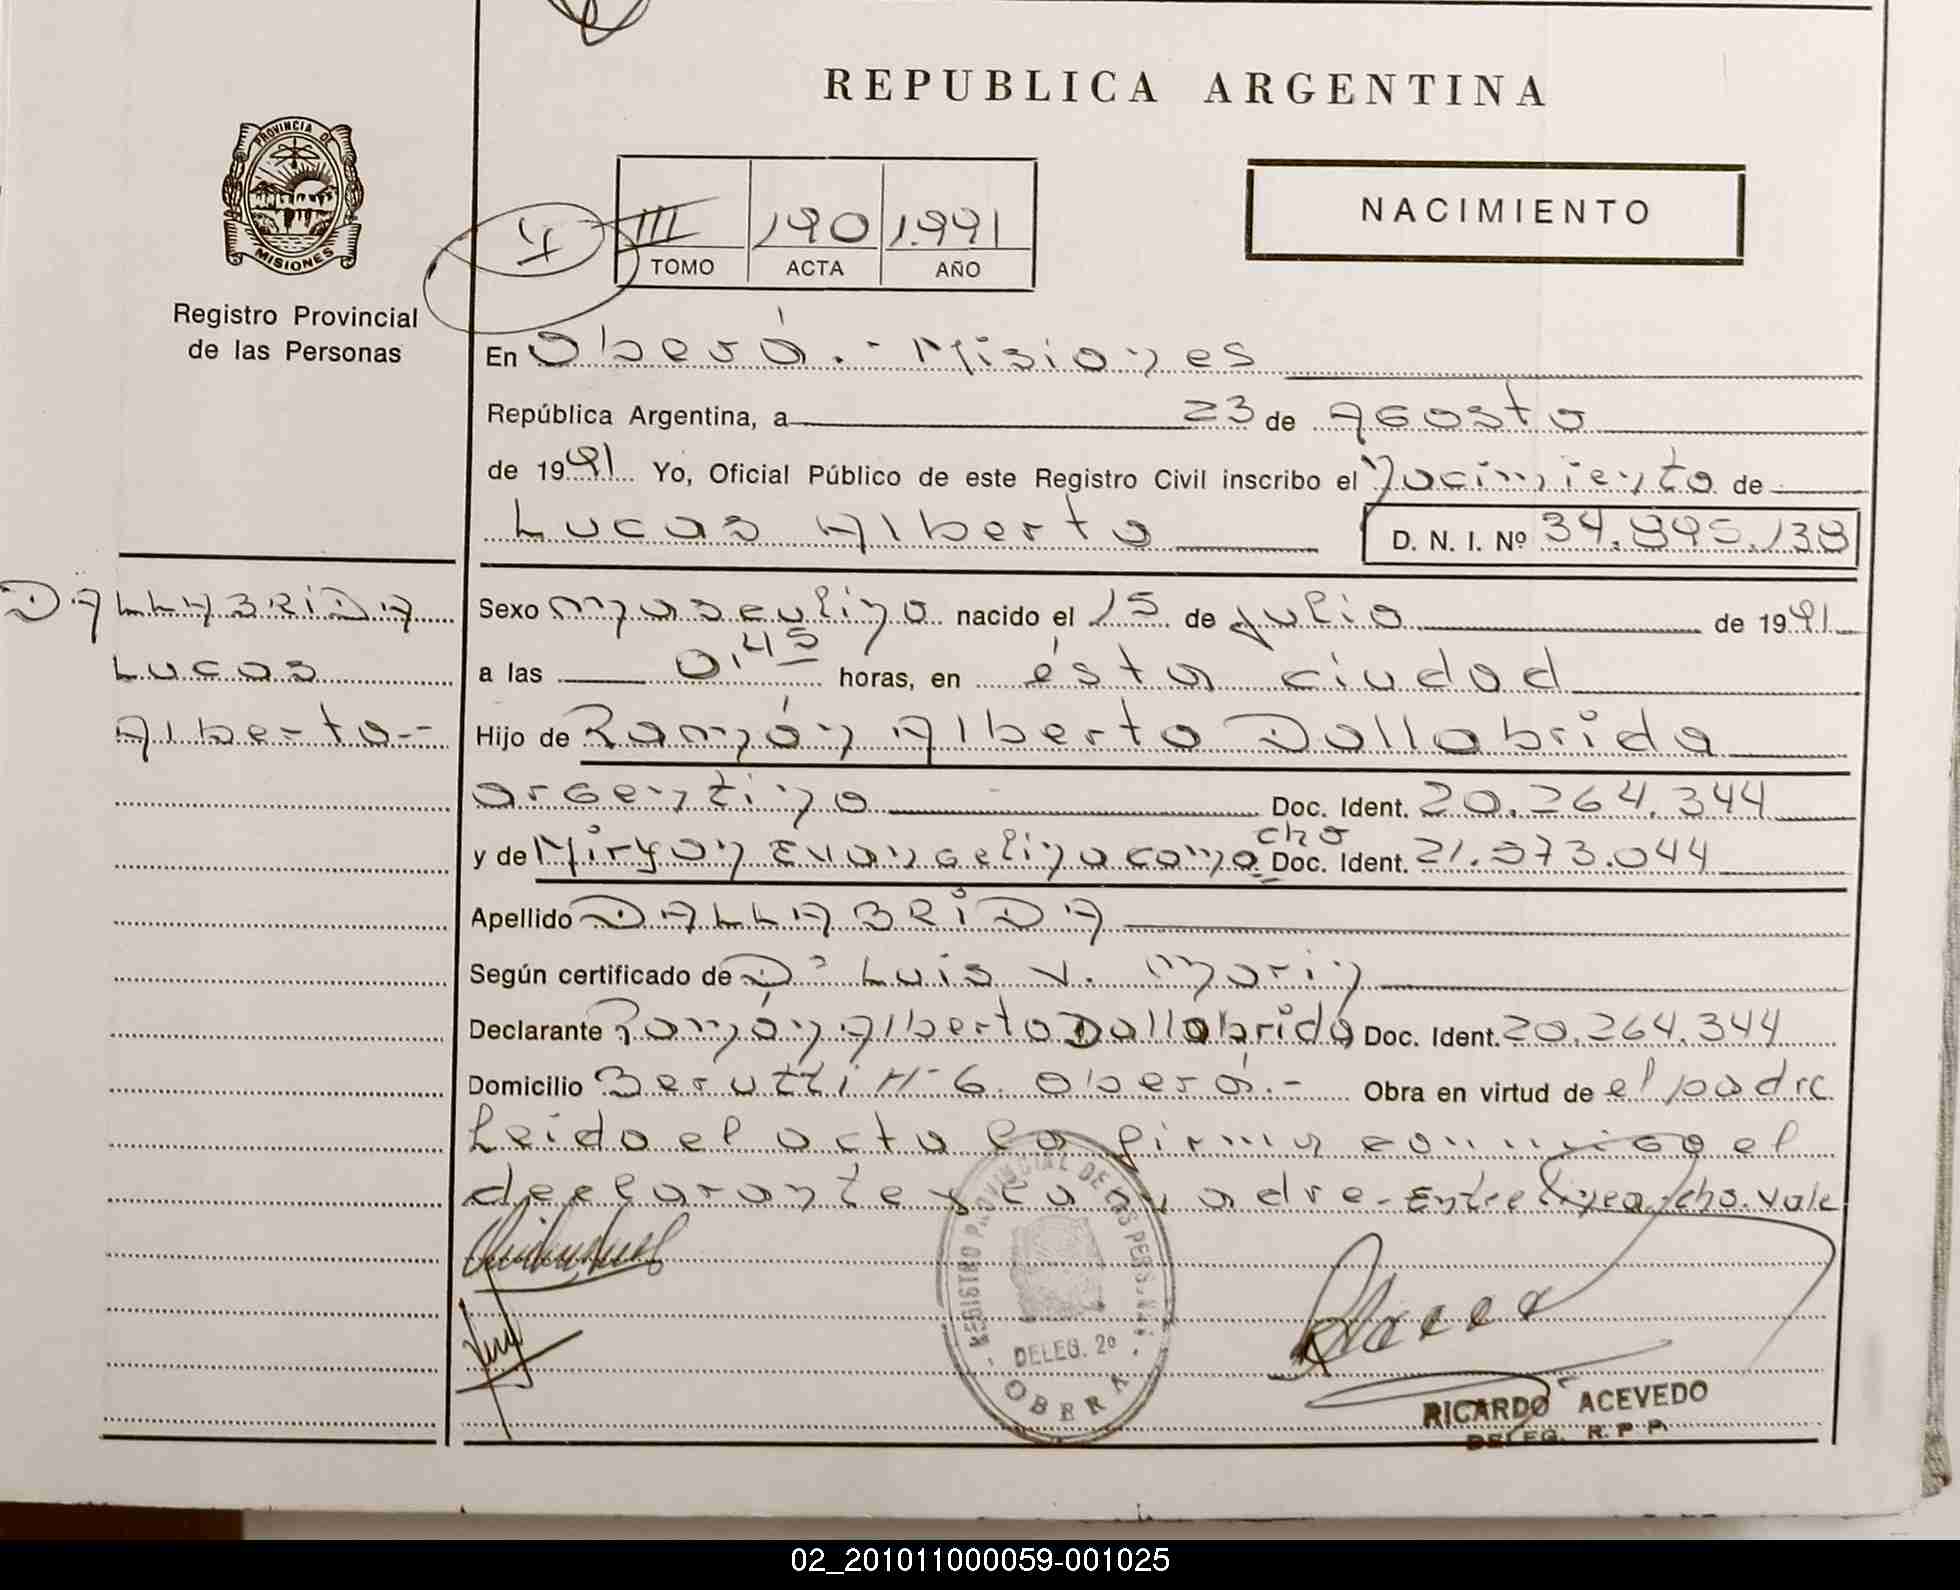 REPUBLICA ARGENTINA
PROVINCIA DE
MISIONES
Registro Provincial
de las Personas
III 190 1.991
TOMO ACTA AÑO
NACIMIENTO
En Oberá.- Misiones
República Argentina, a 23 de Agosto
de 1991 Yo, Oficial Público de este Registro Civil inscribo el Nacimiento de
Lucas Alberto D. N. I. Nº 34.895.138
DALLABRIDA
Lucas
Alberto.-
Sexo masculino nacido el 15 de julio de 1991
a las 0,45 horas, en ésta ciudad
Hijo de Ramón Alberto Dallabrida
argentino Doc. Ident. 20.264.344
cho
y de Miryan Evangelina cama Doc. Ident. 21.373.044
Apellido DALLABRIDA
Según certificado de Dº Luis V. Marin
Declarante Ramón Alberto Dallabrida Doc. Ident. 20.264.344
Domicilio Berutti Nº 6. Oberá.- Obra en virtud de el padre
Leido el acta la firma conmigo el
declarante y la madre.- Entre linea: cho. vale
REGISTRO PROVINCIAL DE LAS PERSONAS
DELEG. 2º
OBERA
RICARDO ACEVEDO
DELEG. R. P. P.
02_201011000059-001025